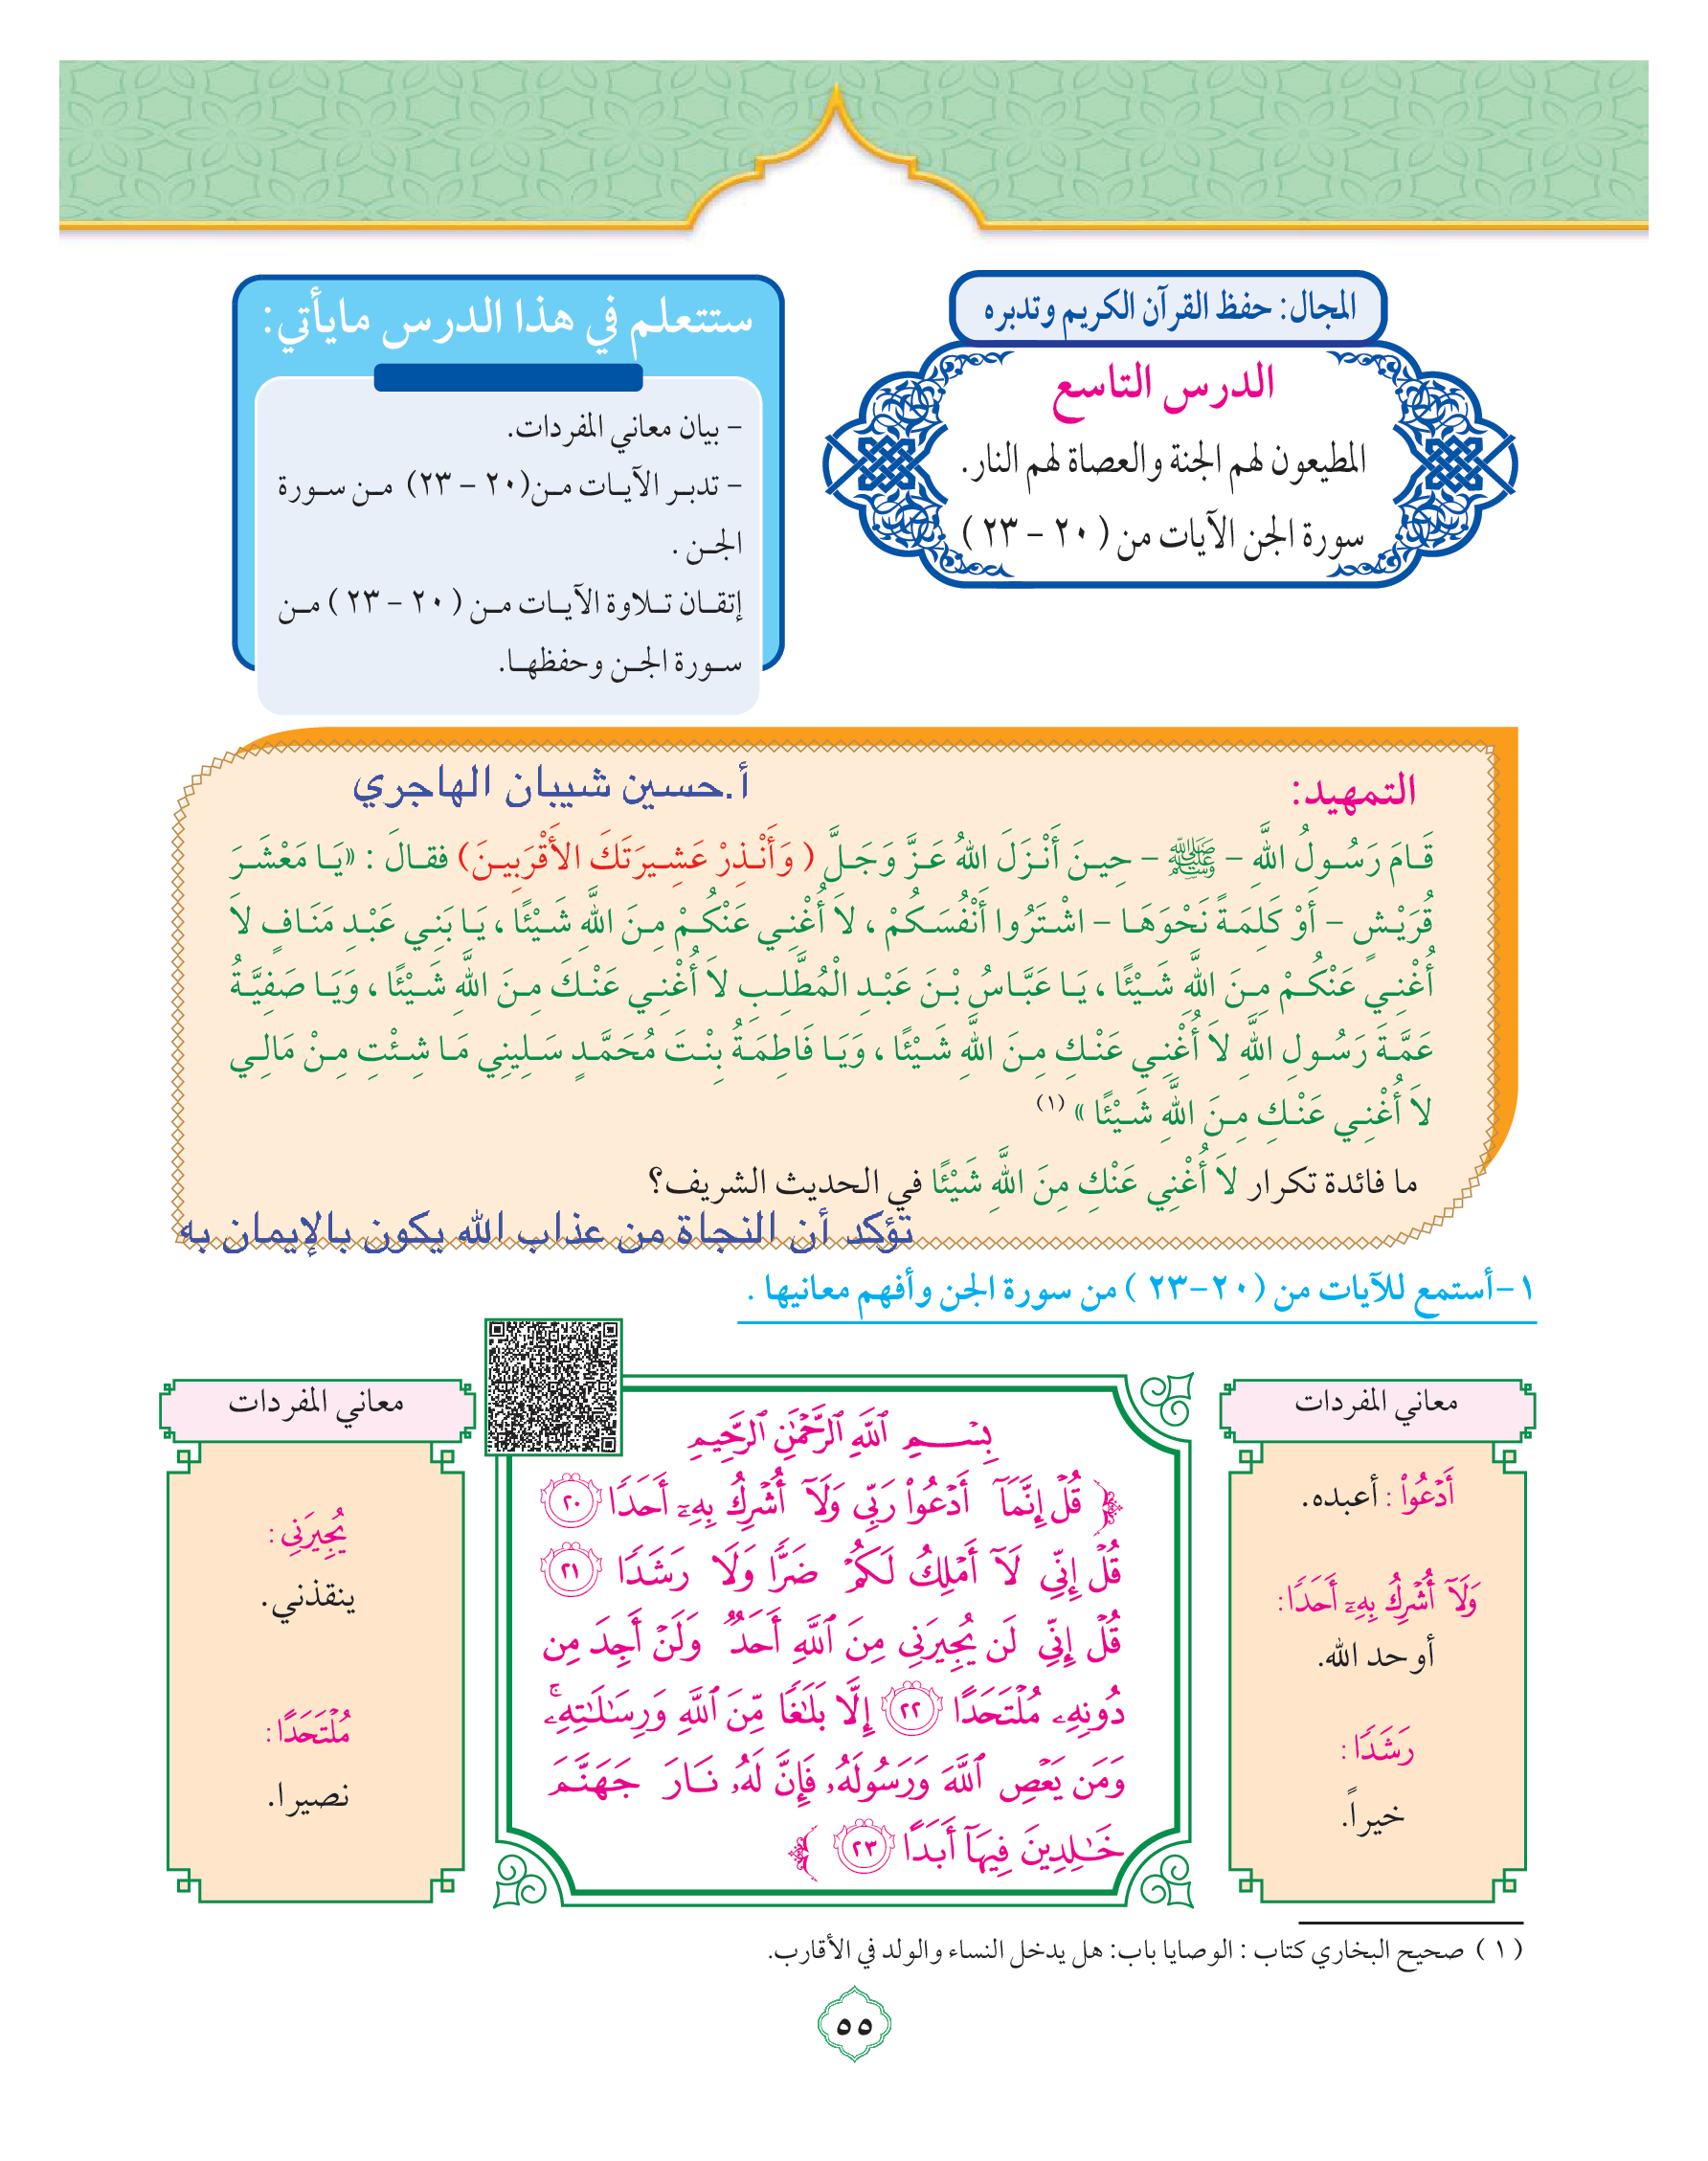 المجال: حفظ القرآن الكريم وتدبره
الدرس التاسع
المطيعون لهم الجنة والعصاة لهم النار.
سورة الجن الآيات من ( ٢٠ - ٢٣ )
ستتعلم في هذا الدرس مايأتي:
- بيان معاني المفردات.
- تدبر الآيات من(٢٠ - ٢٣) من سورة
الجن .
إتقان تلاوة الآيات من ( ٢٠ - ٢٣ ) من
سورة الجن وحفظها.
التمهيد:
أ.حسين شيبان الهاجري
قَامَ رَسُولُ اللَّهِ - ﷺ - حِينَ أَنْزَلَ اللهُ عَزَّ وَجَلَّ ( وَأَنْذِرْ عَشِيرَتَكَ الأَقْرَبِينَ) فقالَ : «يَا مَعْشَرَ
قُرَيْشٍ - أَوْ كَلِمَةً نَحْوَهَا - اشْتَرُوا أَنْفُسَكُمْ ، لاَ أُغْنِي عَنْكُمْ مِنَ اللَّهِ شَيْئًا ، يَا بَنِي عَبْدِ مَنَافٍ لاَ
أُغْنِي عَنْكُمْ مِنَ اللَّهِ شَيْئًا ، يَا عَبَّاسُ بْنَ عَبْدِ الْمُطَّلِبِ لاَ أُغْنِي عَنْكَ مِنَ اللَّهِ شَيْئًا ، وَيَا صَفِيَّةُ
عَمَّةَ رَسُولِ اللَّهِ لاَ أُغْنِي عَنْكِ مِنَ اللَّهِ شَيْئًا ، وَيَا فَاطِمَةُ بِنْتَ مُحَمَّدٍ سَلِينِي مَا شِئْتِ مِنْ مَالِي
لاَ أُغْنِي عَنْكِ مِنَ اللَّهِ شَيْئًا » (١)
ما فائدة تكرار لاَ أُغْنِي عَنْكِ مِنَ اللَّهِ شَيْئًا في الحديث الشريف؟
تؤكد أن النجاة من عذاب الله يكون بالإيمان به
١-أستمع للآيات من (٢٠-٢٣ ) من سورة الجن وأفهم معانيها .
معاني المفردات
أَدْعُواْ : أعبده.
وَلَآ أُشْرِكُ بِهِۦٓ أَحَدًا:
أوحد الله.
رَشَدًا :
خيراً.
بِسْمِ ٱللَّهِ ٱلرَّحْمَٰنِ ٱلرَّحِيمِ
﴿ قُلْ إِنَّمَآ أَدْعُواْ رَبِّى وَلَآ أُشْرِكُ بِهِۦٓ أَحَدًا ٢٠
قُلْ إِنِّى لَآ أَمْلِكُ لَكُمْ ضَرًّا وَلَا رَشَدًا ٢١
قُلْ إِنِّى لَن يُجِيرَنِى مِنَ ٱللَّهِ أَحَدٌ وَلَنْ أَجِدَ مِن
دُونِهِۦ مُلْتَحَدًا ٢٢ إِلَّا بَلَٰغًا مِّنَ ٱللَّهِ وَرِسَٰلَٰتِهِۦۚ
وَمَن يَعْصِ ٱللَّهَ وَرَسُولَهُۥ فَإِنَّ لَهُۥ نَارَ جَهَنَّمَ
خَٰلِدِينَ فِيهَآ أَبَدًا ٢٣ ﴾
معاني المفردات
يُجِيرَنِى :
ينقذني.
مُلْتَحَدًا :
نصيرا.
( ١ ) صحيح البخاري كتاب : الوصايا باب: هل يدخل النساء والولد في الأقارب.
٥٥